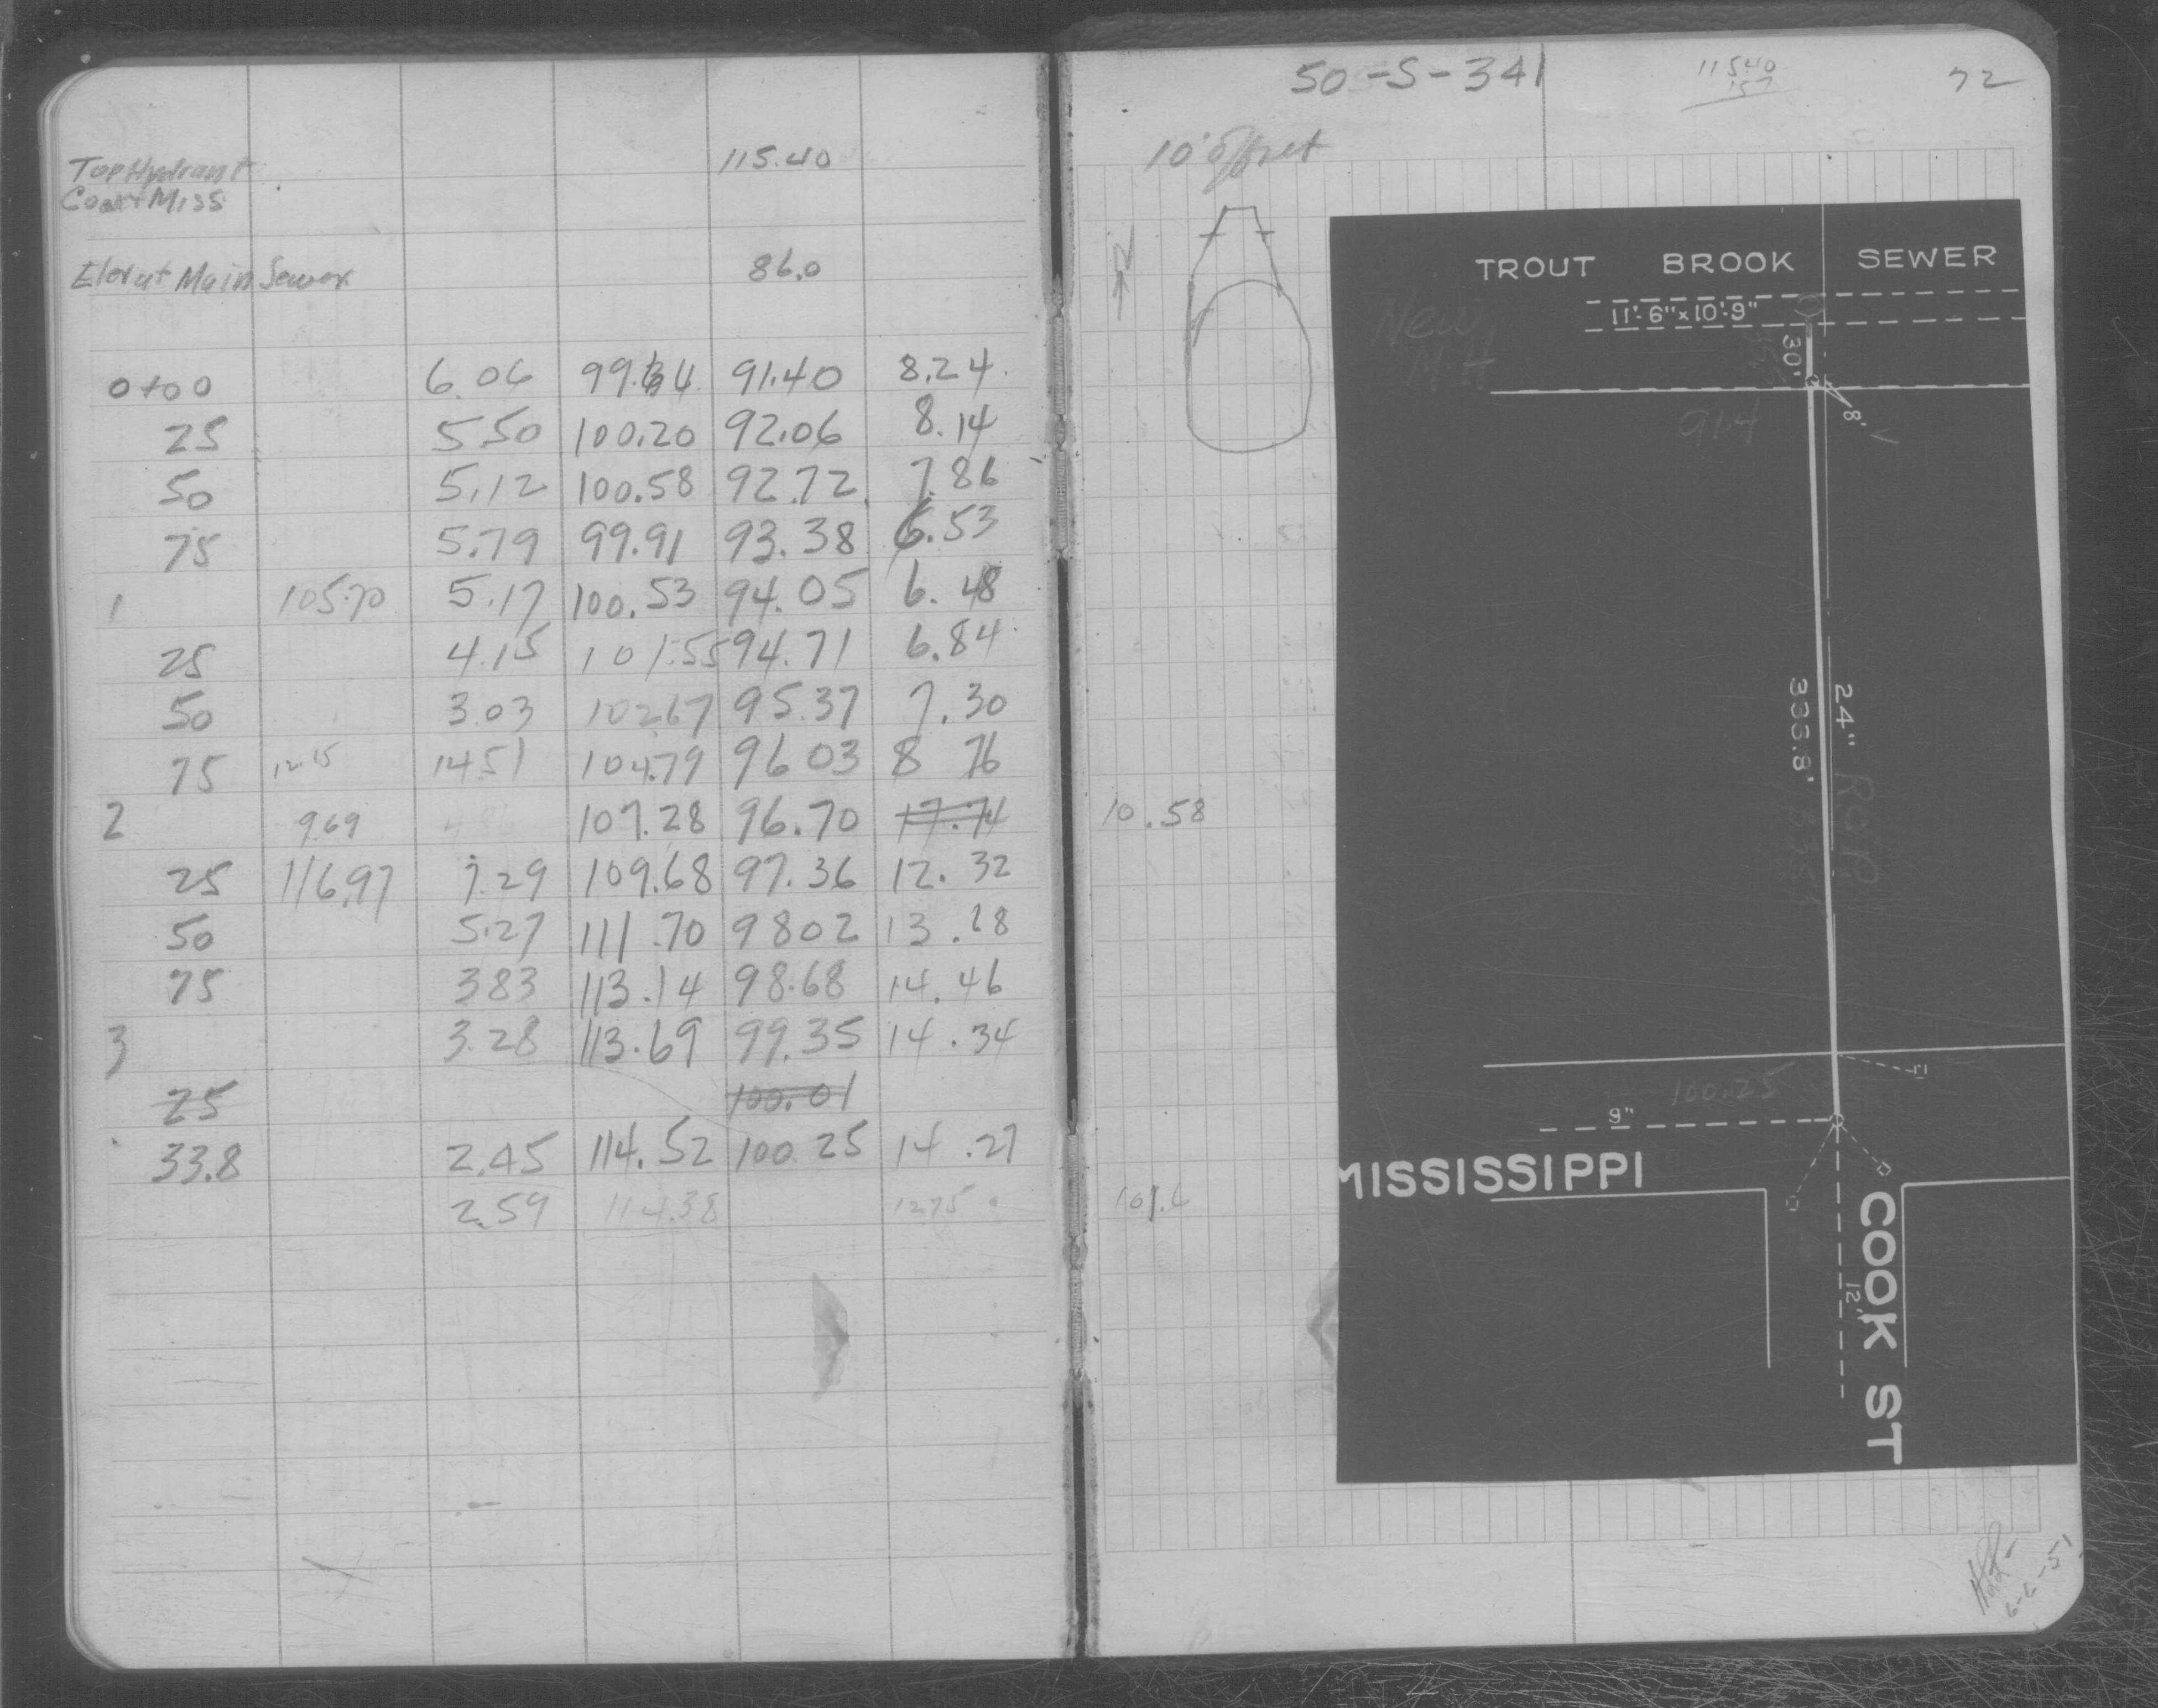 Top Hydrant 115.40
Cook + Miss
Elev at Main Sewer 86.0
0+00 6.06 99.64 91.40 8.24
25 5.50 100.20 92.06 8.14
50 5.12 100.58 92.72 7.86
75 5.79 99.91 93.38 6.53
1 105.70 5.17 100.53 94.05 6.48
25 4.15 101.55 94.71 6.84
50 3.03 102.67 95.37 7.30
75 12.15 14.51 104.79 96 03 8 76
2 9.69 107.28 96.70 17.74 10.58
25 116.97 7.29 109.68 97.36 12.32
50 5.27 111.70 98 02 13.28
75 3 83 113.14 98.68 14.46
3 3.28 113.69 99.35 14.34
25 100.01
33.8 2.45 114.52 100 25 14.27
2.59 114.38 12.75 101.6
50-S-341
115.40
72
10' Offset
TROUT BROOK SEWER
11'-6"x10'-9"
New
MH
30'
8'
91.4
333.8'
24"
R.C.P.
100.25
9"
MISSISSIPPI
COOK ST
12"
6-6-51